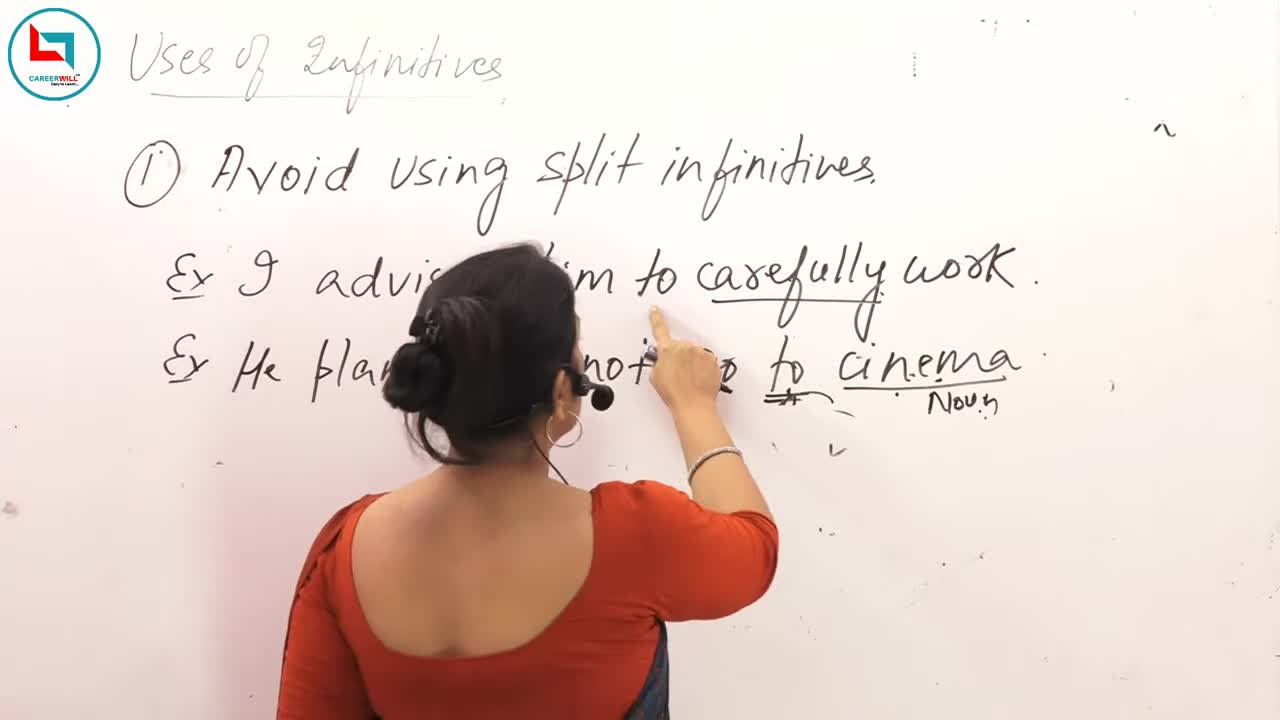 CAREERWILL
Uses of Infinitives
① Avoid using split infinitives.
Ex I advis him to carefully work.
Ex He plan not to cinema.
Noun